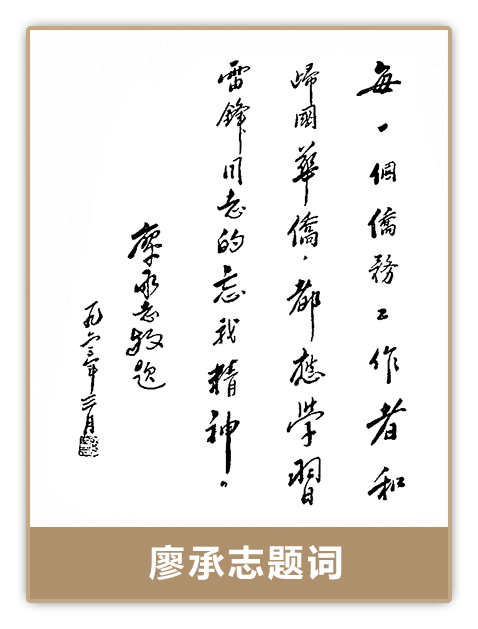 每一個僑務工作者和
歸國華僑，都應學習
雷鋒同志的忘我精神。
廖承志敬題
一九六三年三月
廖承志题词